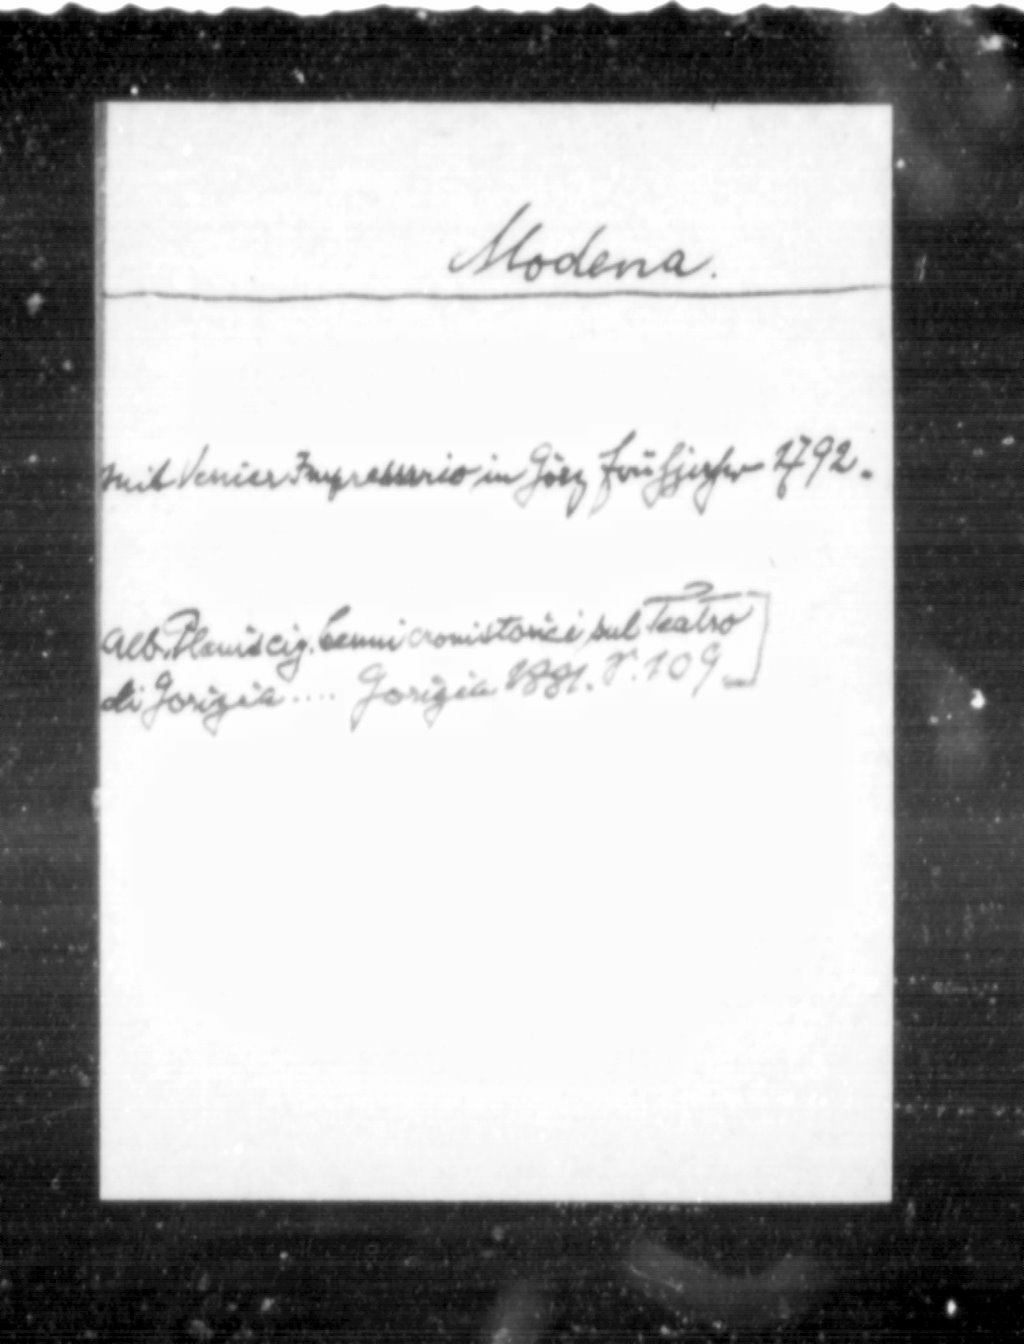 Modena.
mit Venier Impressario in Görz Frühjahr 1792.
Alb. Planiscig. Cenni cronistorici sul Teatro
di Gorizia .... Gorizia 1881. P. 109